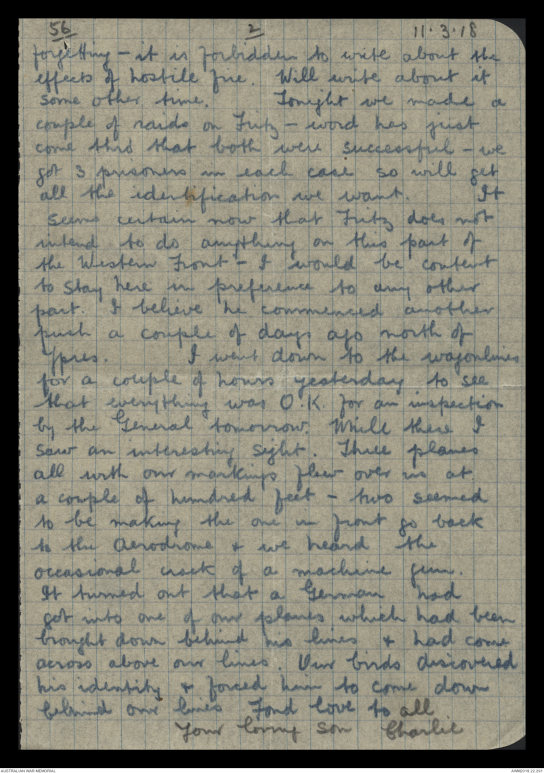 56 2 11.3.18
forgetting - it is forbidden to write about the
effects of hostile fire. Will write about it
some other time. Tonight we made a
couple of raids on Fritz - word has just
come thro that both were successful - we
got 3 prisoners in each case so will get
all the identification we want. It
seems certain now that Fritz does not
intend to do anything on this part of
the Western Front - I would be content
to stay here in preference to any other
part. I believe he commenced another
push a couple of days ago north of
Ypres. I went down to the wagonlines
for a couple of hours yesterday to see
that everything was O.K. for an inspection
by the General tomorrow. While there I
saw an interesting sight. Three planes
all with our markings flew over us at
a couple of hundred feet - two seemed
to be making the one in front go back
to the aerodrome & we heard the
occasional crack of a machine gun.
It turned out that a German had
got into one of our planes which had been
brought down behind his lines & had come
across above our lines. Our birds discovered
his identity & forced him to come down
behind our lines Fond love to all
Your loving son Charlie
AUSTRALIAN WAR MEMORIAL